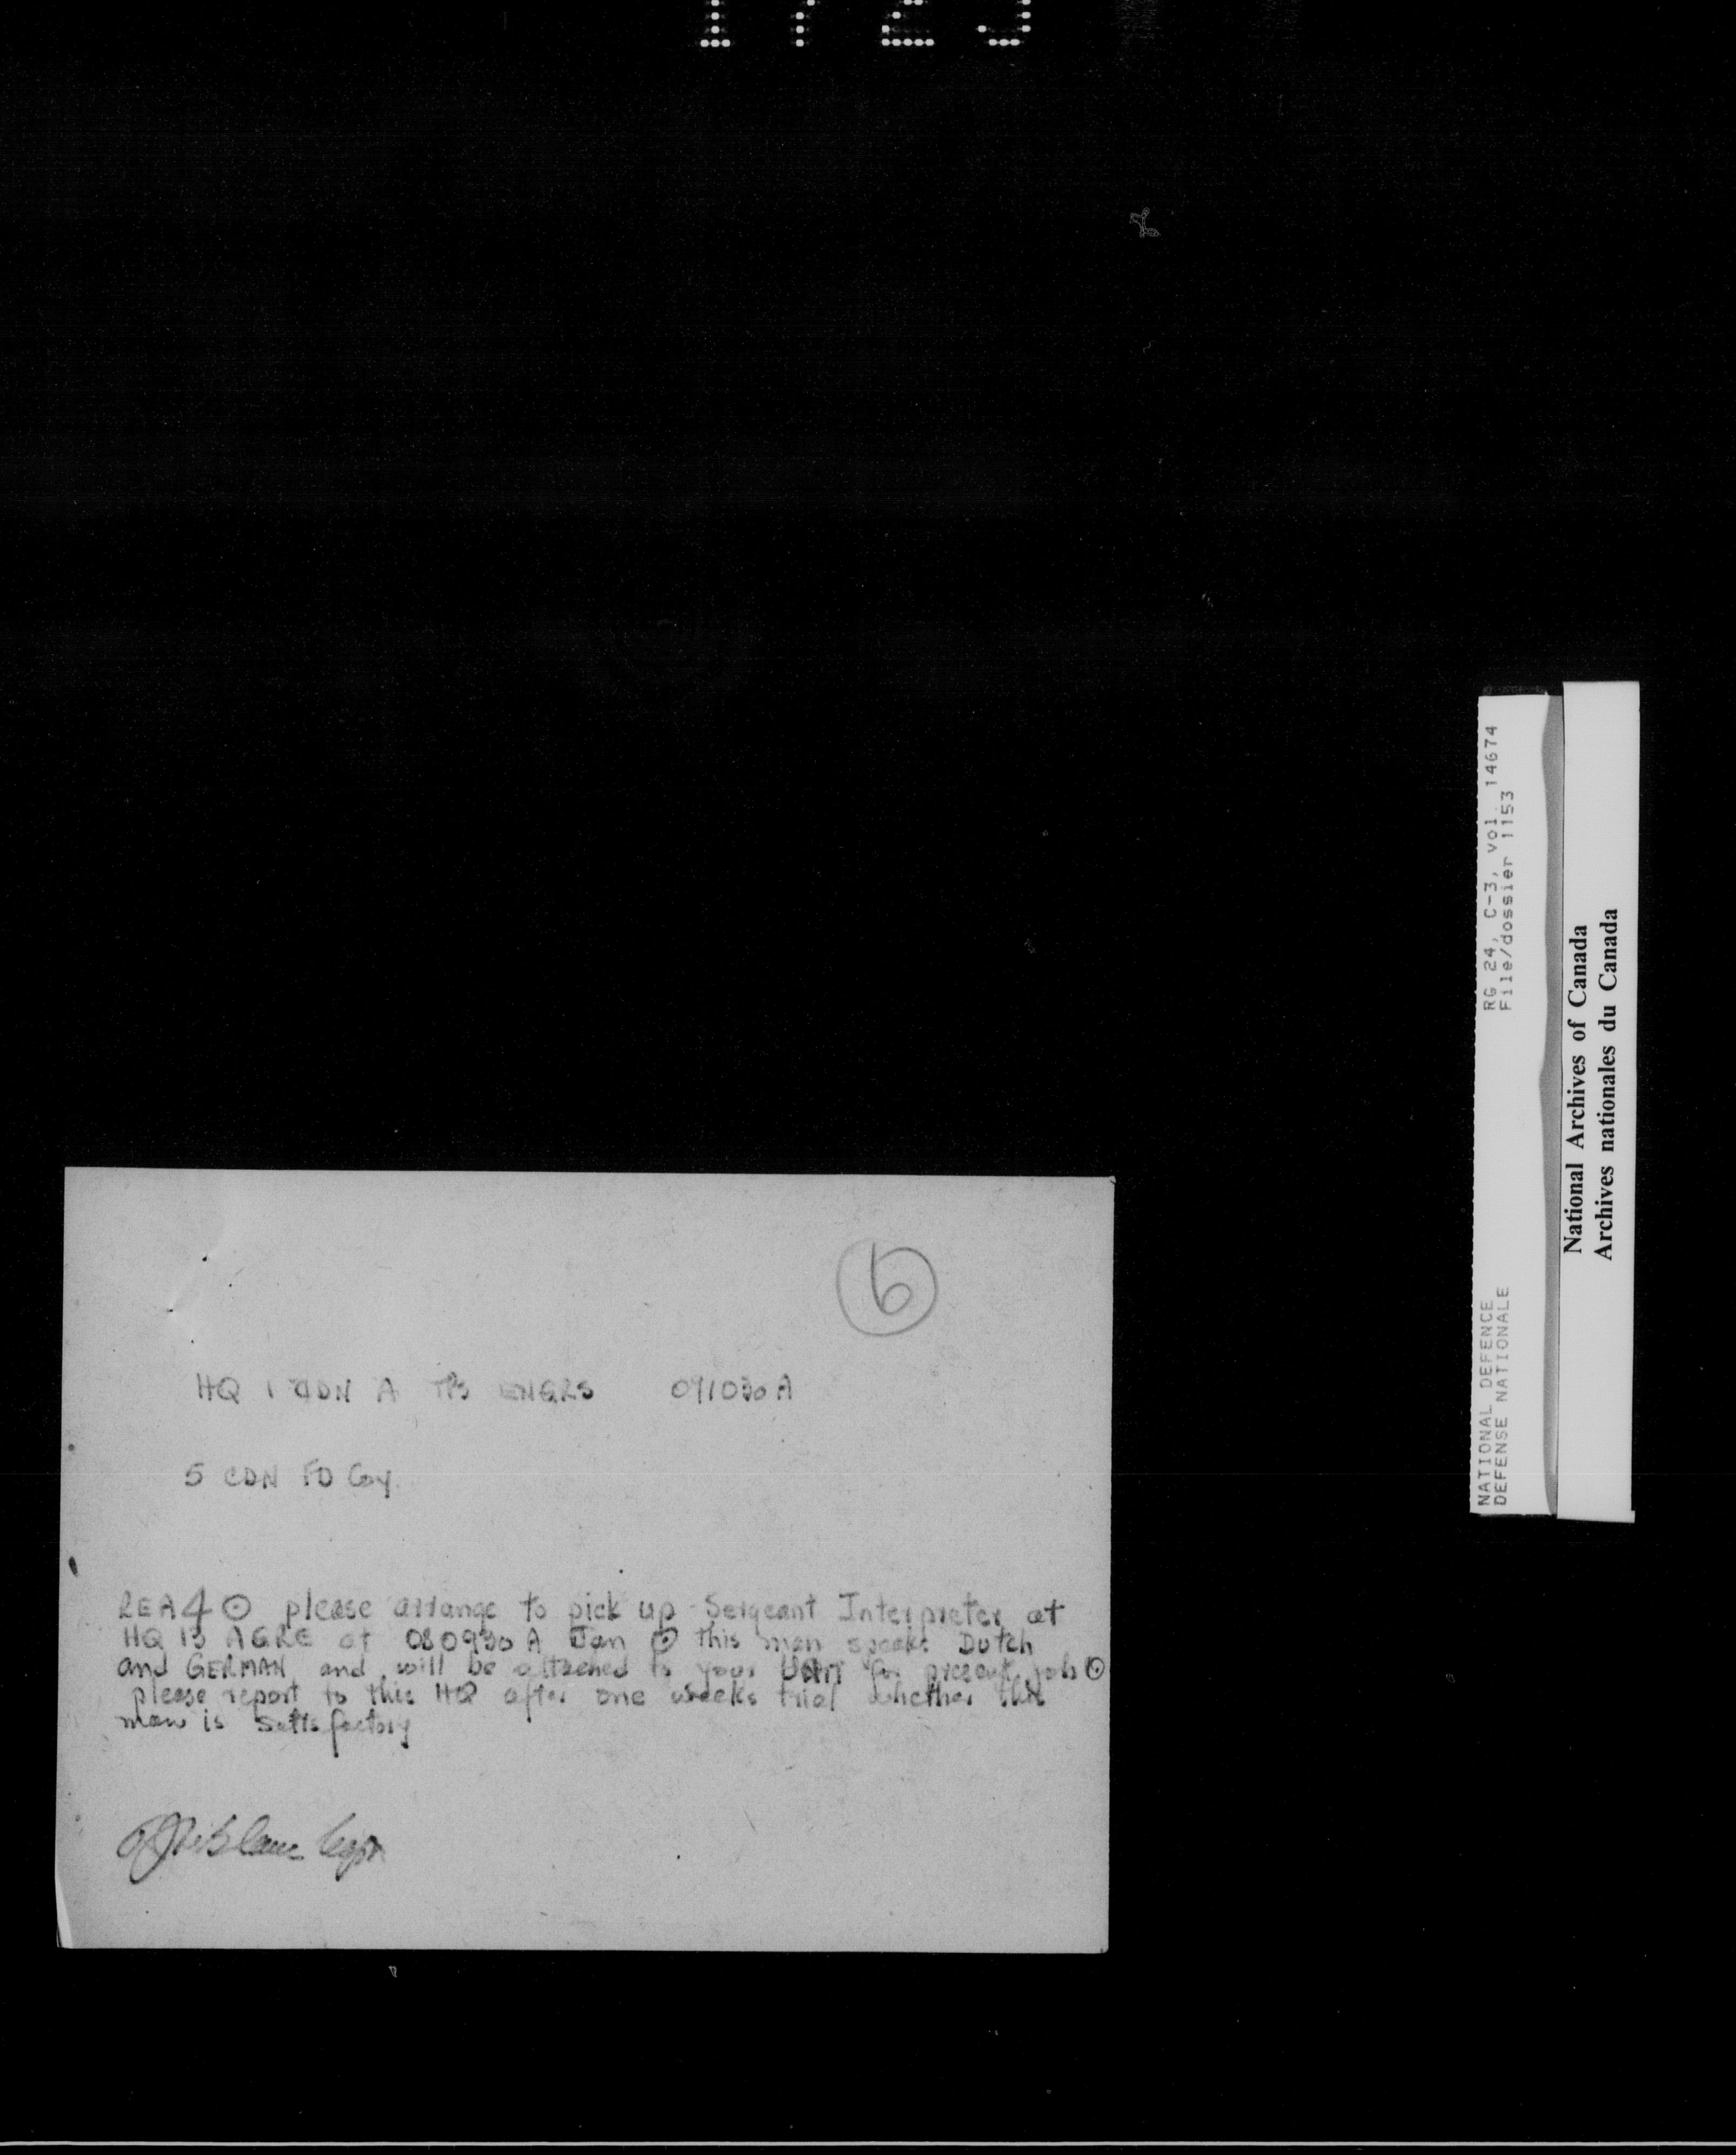 6
HQ 1 CDN A TPS ENGRS 071030 A
5 CDN FD Coy
REA 4 ⊙ please arrange to pick up Sergeant Interpreter at
HQ 13 AGRE at 080930 A Jan ⊙ this man speaks Dutch
and GERMAN and will be attached to your Unit for present job ⊙
please report to this HQ after one weeks trial whether this
man is satisfactory
Capt
RG 24, C-3, vol. 14674
File/dossier 1153
NATIONAL DEFENCE
DEFENSE NATIONALE
National Archives of Canada
Archives nationales du Canada